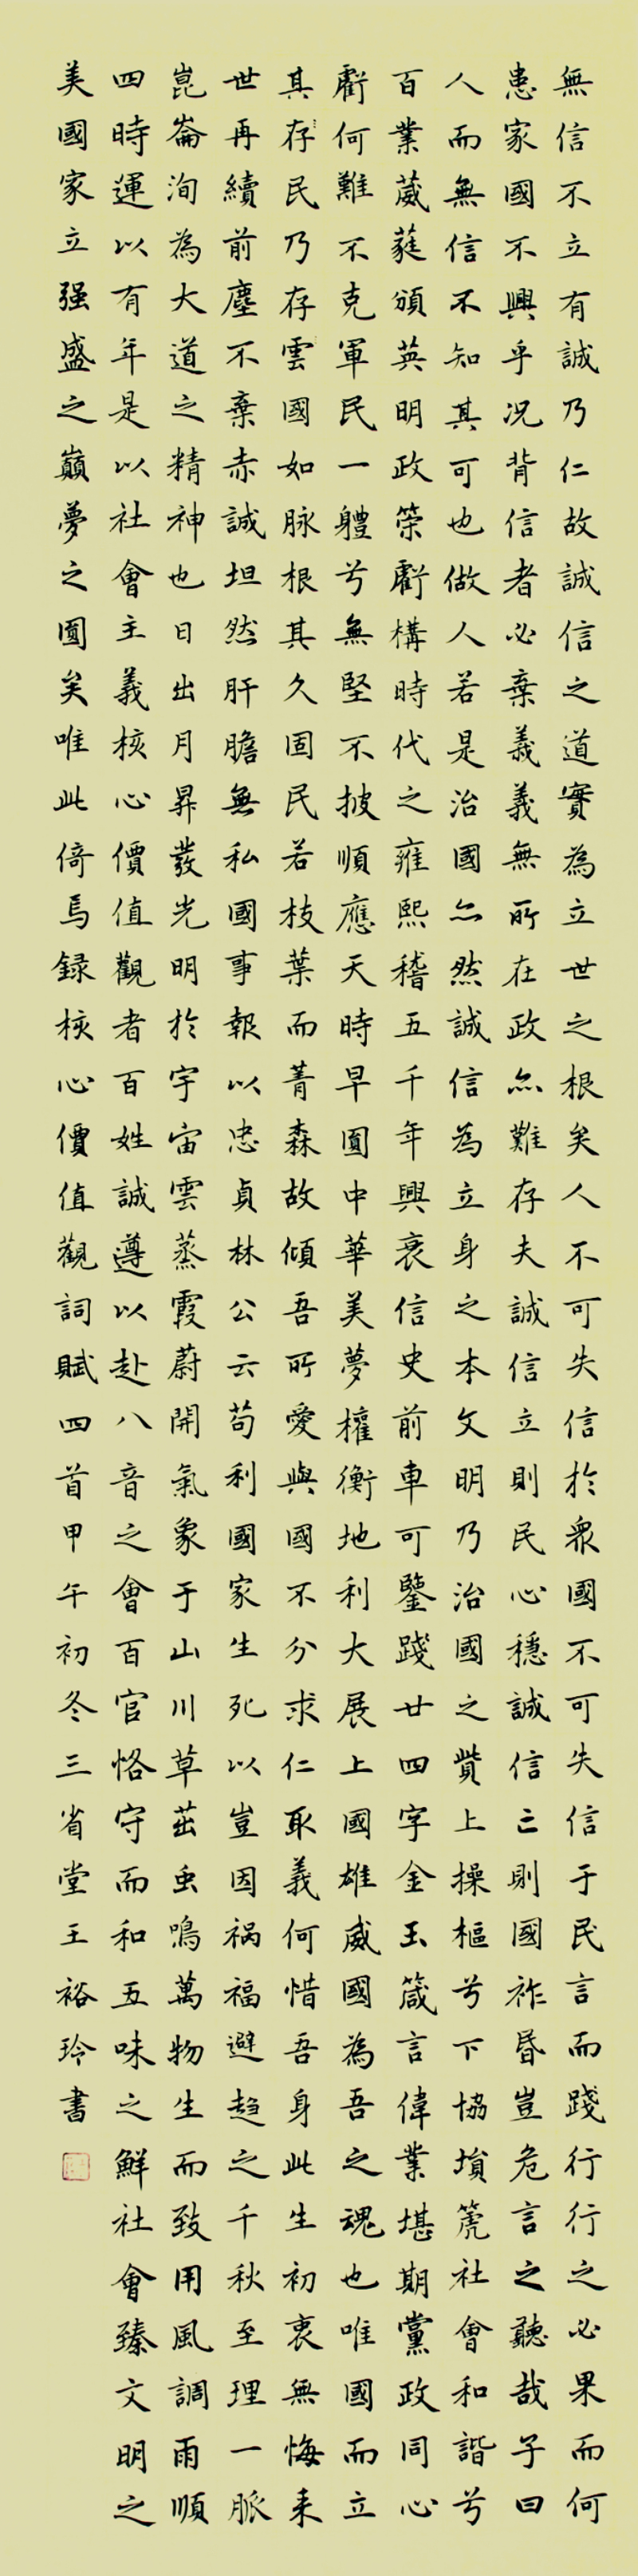 無信不立有誠乃仁故誠信之道實為立世之根矣人不可失信於眾國不可失信于民言而踐行行之必果而何
患家國不興乎况背信者必棄義義無所在政亦難存夫誠信立則民心穩誠信亡則國祚昏豈危言之聽哉子曰
人而無信不知其可也做人若是治國亦然誠信為立身之本文明乃治國之貲上操樞兮下協塤篪社會和諧兮
百業葳蕤頒英明政策虧構時代之雍熙稽五千年興衰信史前車可鑒踐廿四字金玉箴言偉業堪期黨政同心
虧何難不克軍民一體兮無堅不披順應天時早圓中華美夢權衡地利大展上國雄威國為吾之魂也唯國而立
其存民乃存雲國如脉根其久固民若枝葉而菁森故傾吾所愛與國不分求仁取義何惜吾身此生初衷無悔来
世再續前塵不棄赤誠坦然肝膽無私國事報以忠貞林公云苟利國家生死以豈因禍福避趋之千秋至理一脈
崑崙洵為大道之精神也日出月昇發光明於宇宙雲蒸霞蔚開氣象于山川草茁虫鳴萬物生而致用風調雨順
四時運以有年是以社會主義核心價值觀者百姓誠遵以赴八音之會百官恪守而和五味之鮮社會臻文明之
美國家立强盛之巔夢之圓矣唯此倚焉録核心價值觀詞賦四首甲午初冬三省堂王裕玲書